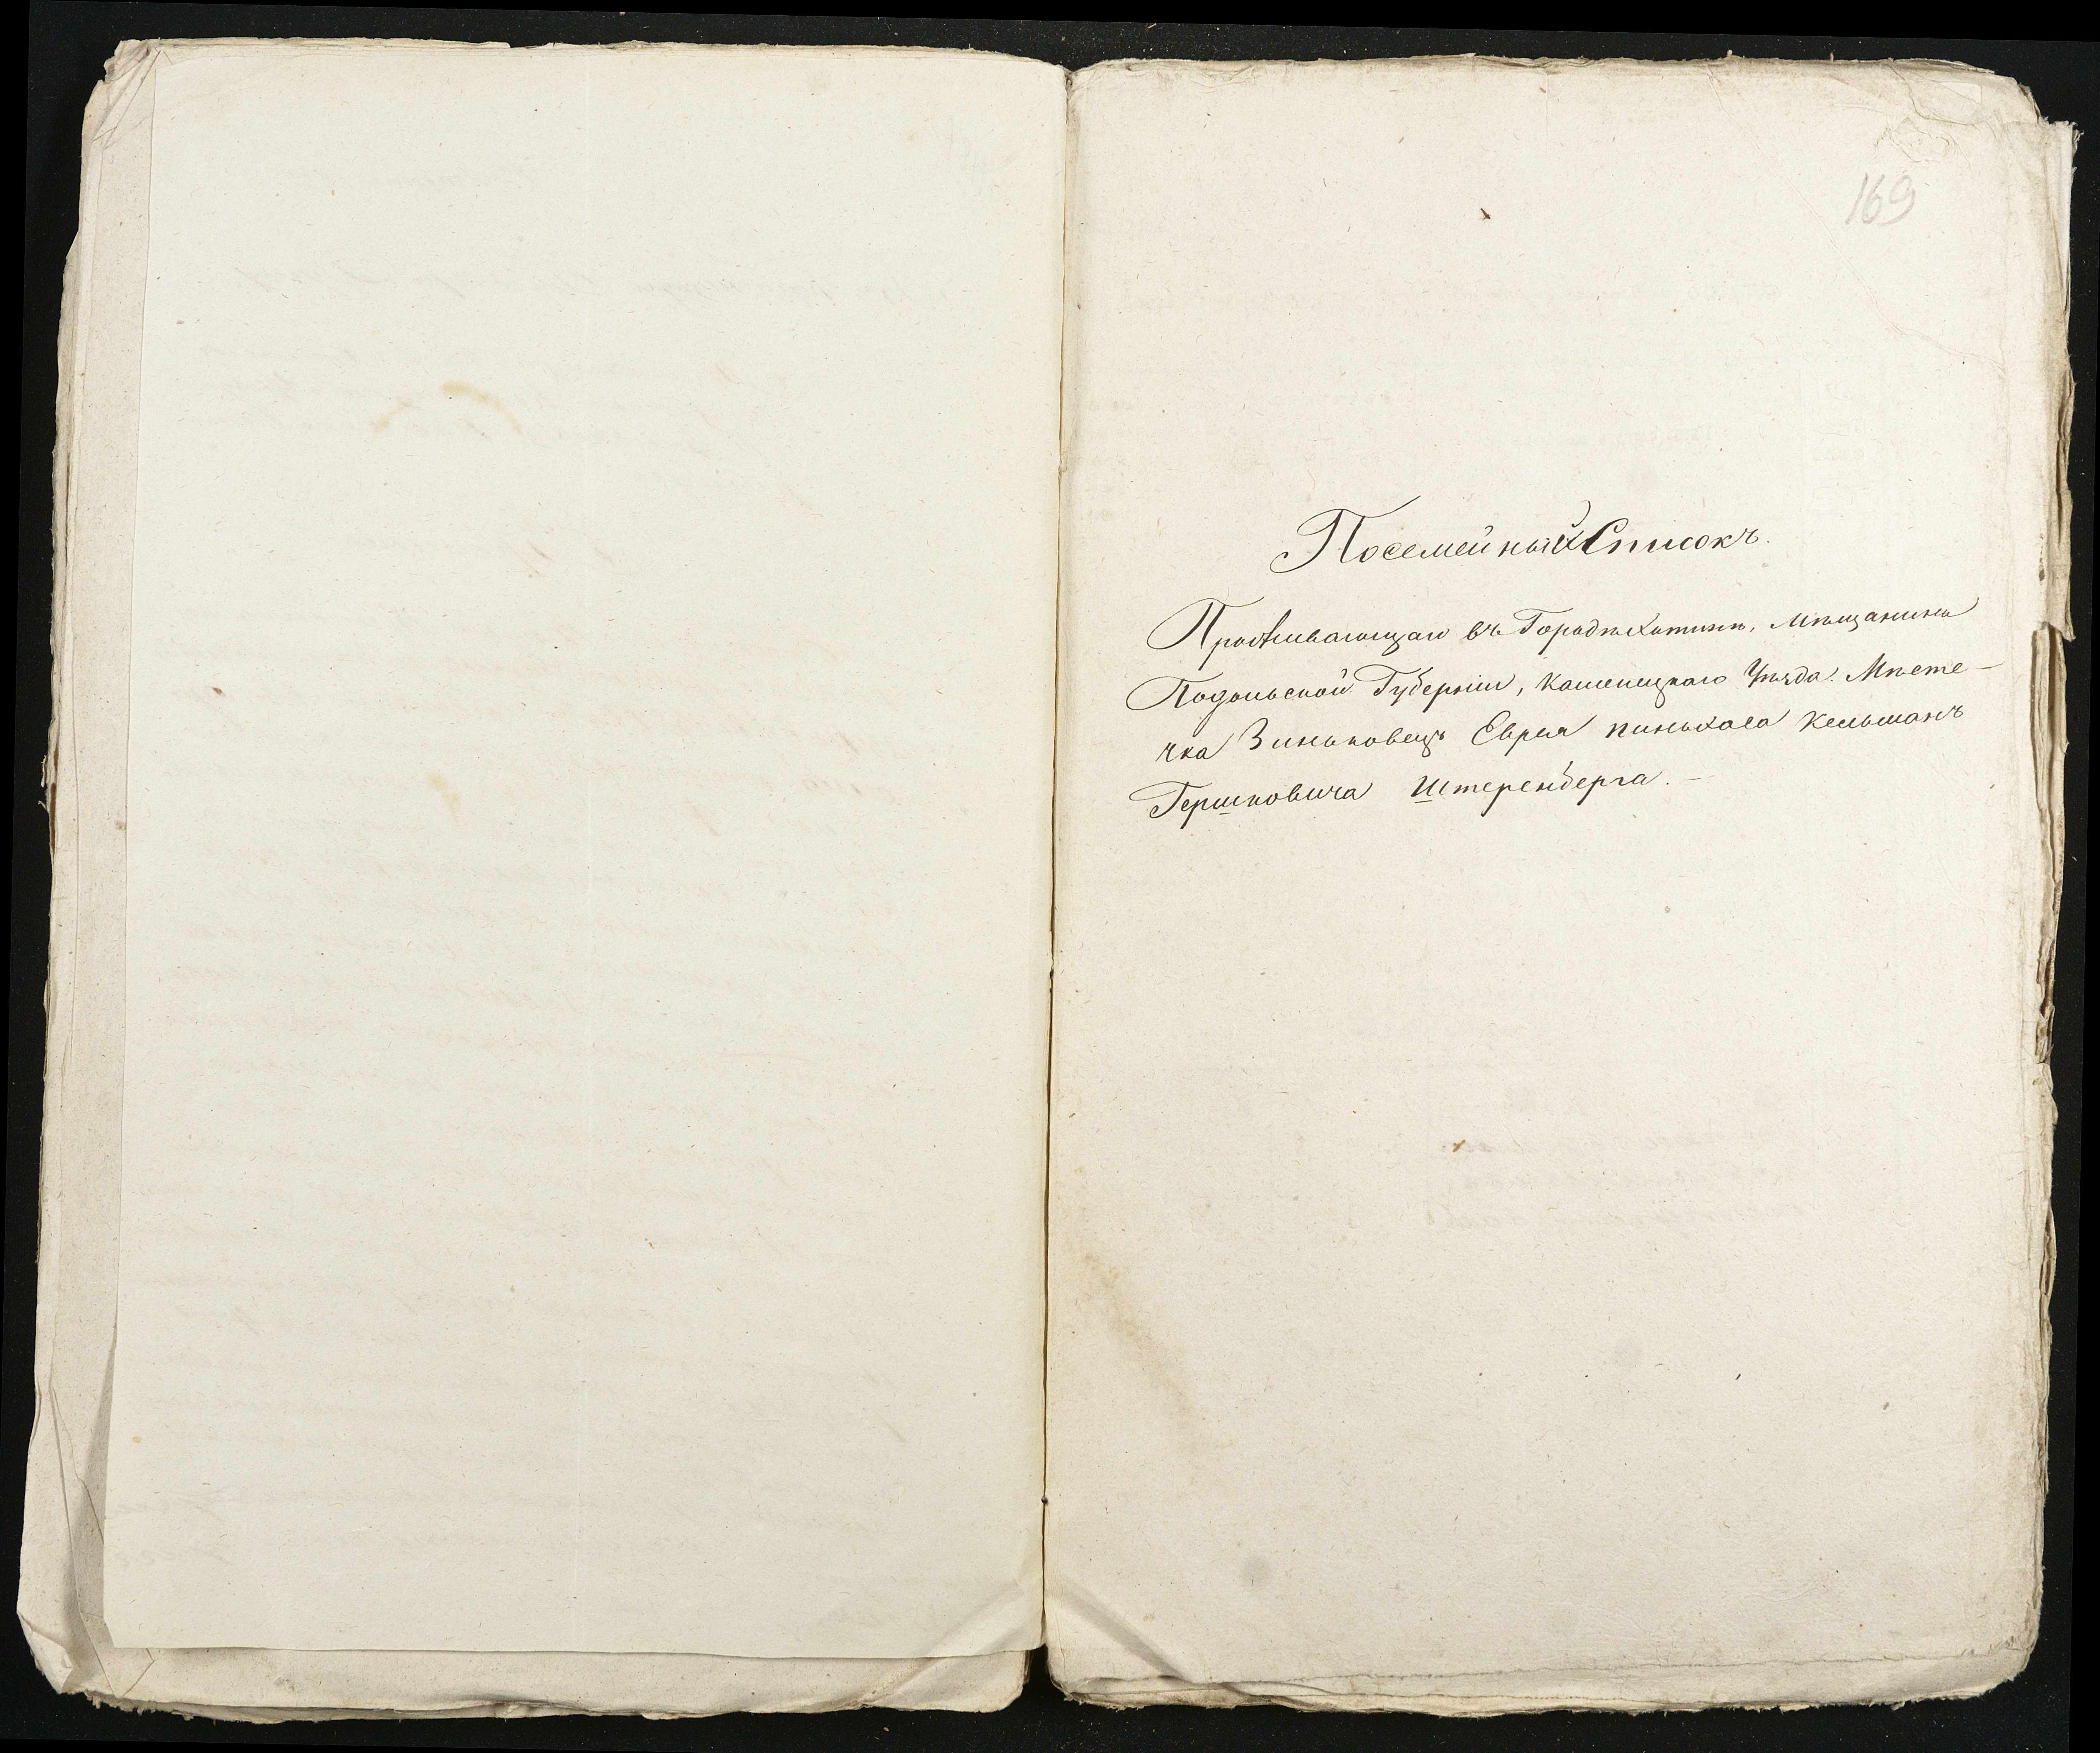 169
Посемейный Списокъ.
Проживающаго въ Городѣ Хотинѣ, Мѣщанина
Подольской Губерніи, Каменецкаго Уѣзда. Мѣсте-
чка Зиньковецъ Еврея пиньхаса Кельманъ
Гершковича Штеренберга. —